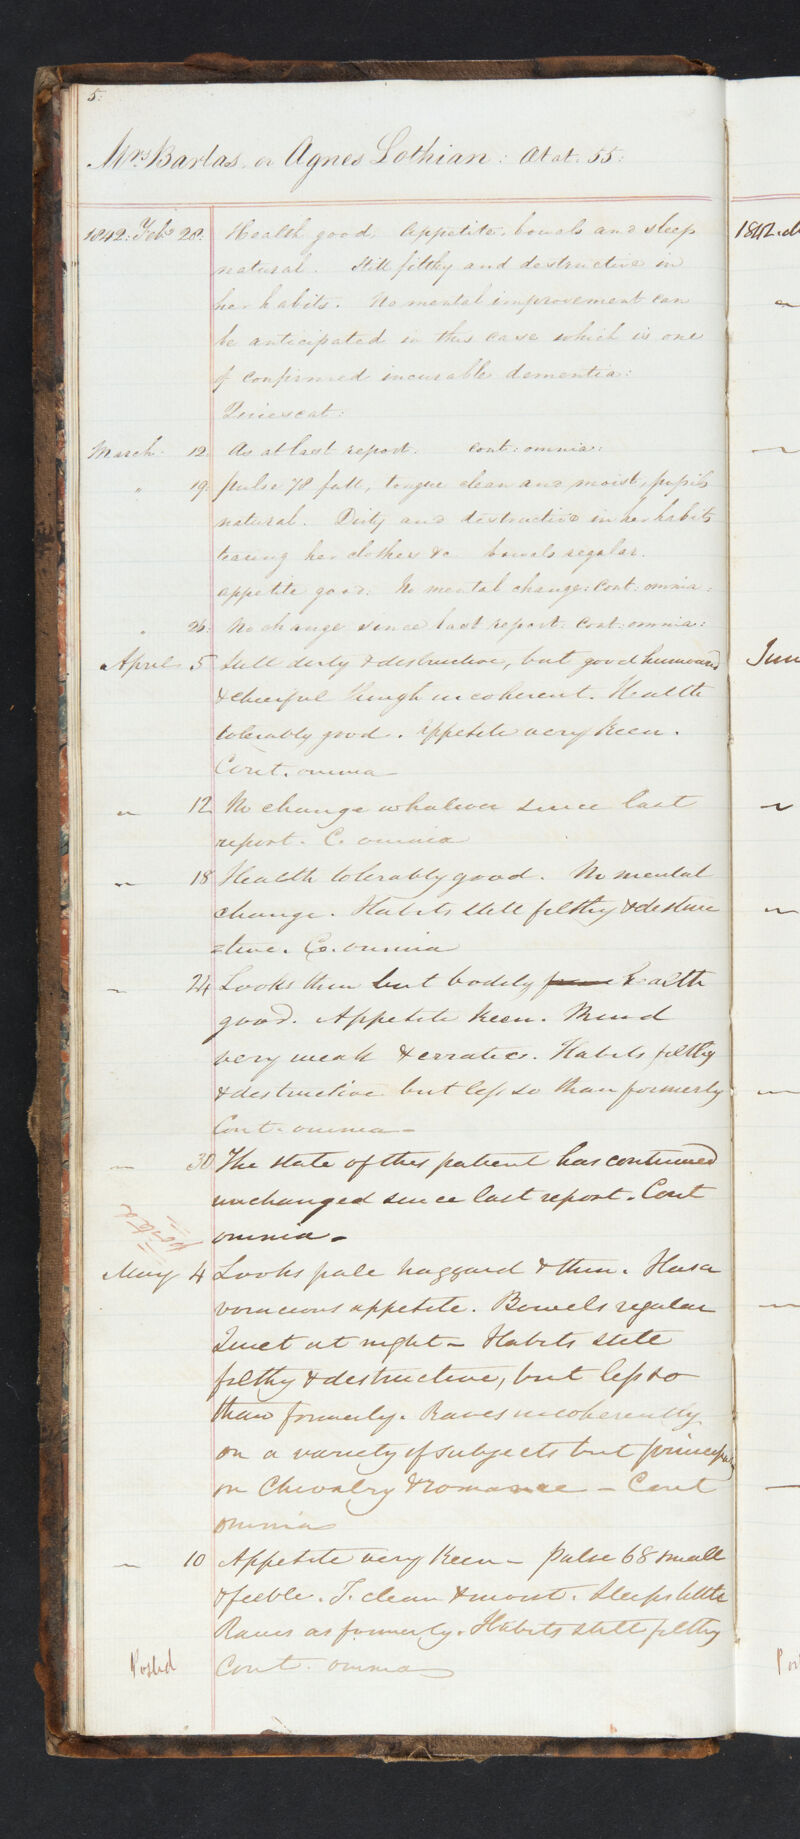 5.
Mrs Barlas, or Agnes Lothian: Ætat. 55:
1842: Feby 28: Health good. Appetite, bowels and sleep
natural. Still filthy and destructive in
her habits. No mental improvement can
be anticipated in this case which is one
of confirmed incurable dementia:
Quiescat:
March 12. As at last report. Cont: omnia:
" 19. Pulse 78 full, tongue clean and moist, pupils
natural. Dirty and destructive in her habits
tearing her clothes &c bowels regular.
appetite good: No mental change: Cont: omnia:
" 26: No change since last report: Cont: omnia:
April 5 Still dirty & destructive, but good humoured
& cheerful though incoherent. Health
tolerably good. Appetite very keen.
Cont. omnia
" 12 No change whatever since last
report. C. omnia
" 18 Health tolerably good. No mental
change. Habits still filthy & destruc
=tive. Co. omnia
" 24 Looks thin but bodily health
good. Appetite keen. Mind
very weak & erratic. Habits filthy
& destructive but less so than formerly
Cont. omnia
" 30 The state of this patient has continued
unchanged since last report. Cont
omnia.
May 4 Looks pale haggard & thin. Has a
voracious appetite. Bowels regular
Quiet at night - Habits still
filthy & destructive, but less so
than formerly. Raves incoherently
on a variety of subjects but principally
on Chivalry & romance - Cont
omnia
" 10 Appetite very keen - Pulse 68 small
& feeble. T. clean & moist. Sleeps little
Raves as formerly. Habits still filthy
Posted Cont. omnia
1842.
Jun
Pos